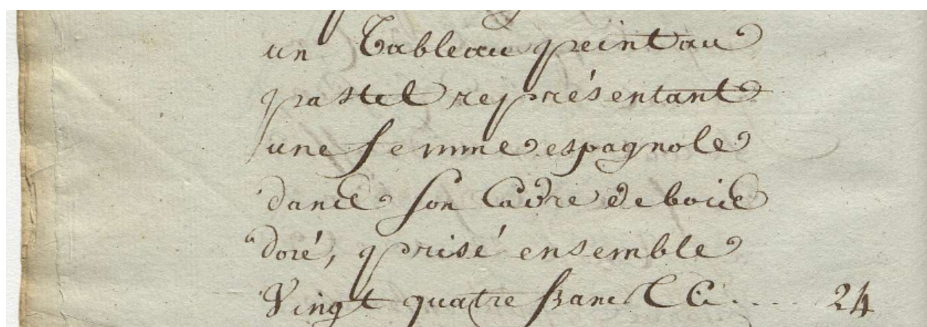 un Tableau peint au
pastel représentant
une femme espagnole
dans son Cadre de bois
doré, prisé ensemble
Vingt quatre francs .... 24